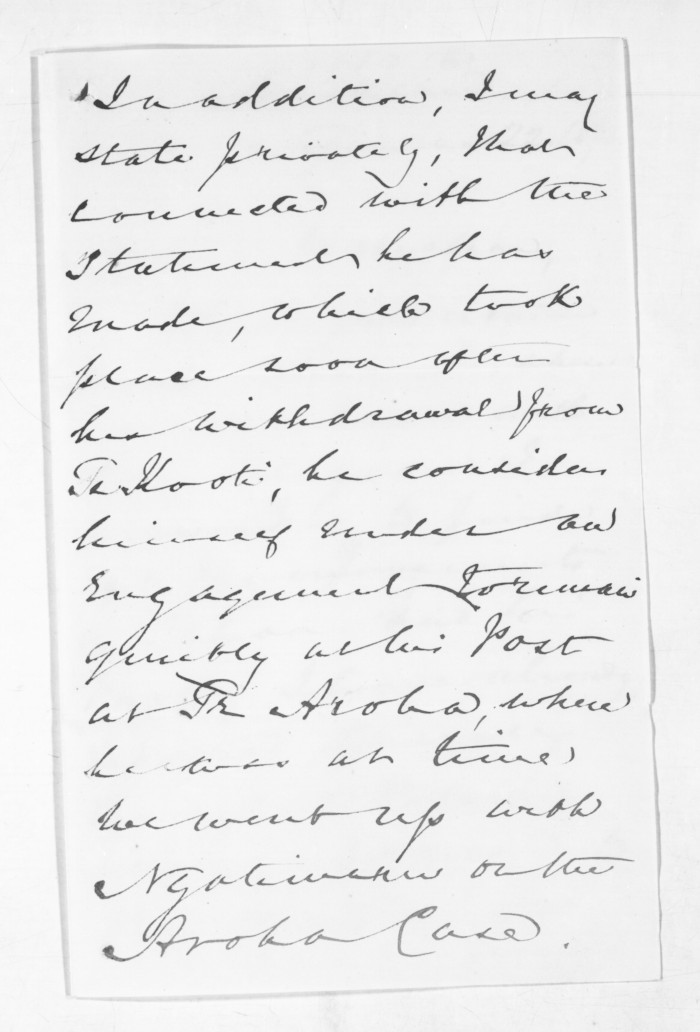 In addition, I may
state privately, that
connected with the
Statement he has
made, which took
place soon after
his withdrawal from
Te Kooti, he considers
himself under an
Engagement to remain
quietly at his Post
at Te Aroha, where
he was at time
we went up with
on the
Aroha Case.